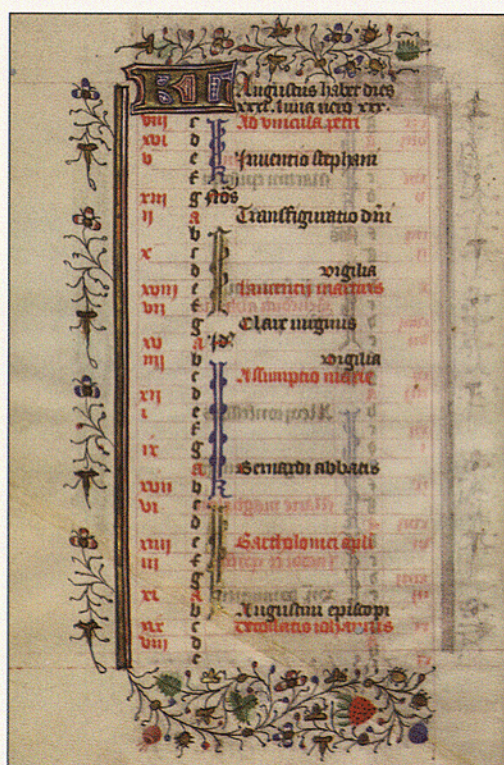 KL Augustus habet dies
xxxi. luna vero xxx.
viij c Ad vincula petri
xvi d
v e Inventio stephani
f
xiij g Nos
ij a Transfiguratio dni
b
x c
d vigilia
xviij e laurencij martiris
vij f
g Clare virginis
xv a Id'
iiij b vigilia
c Assumptio marie
xij d
i e
f
ix g
a Bernardi abbatis
xvij b
vi c
d
xiiij e Bartholomei apli
iij f
g
xi a
b Augustini episcopi
xix c Decollatio iohannis
viij d
e